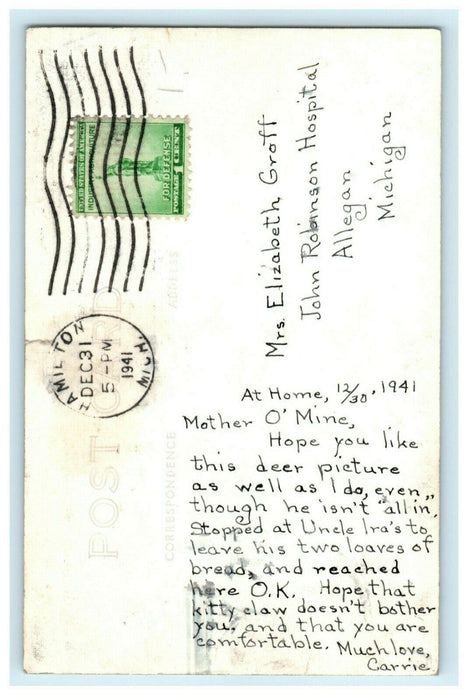 UNITED STATES OF AMERICA
INDUSTRY AGRICULTURE
FOR DEFENSE
POSTAGE 1 CENT
HAMILTON
DEC 31
5-PM
1941
MICH.
POST CARD
ADDRESS
CORRESPONDENCE
Mrs. Elizabeth Groff
John Robinson Hospital
Allegan
Michigan
At Home, 12/30, 1941
Mother O' Mine,
Hope you like
this deer picture
as well as I do, even
though he isn't "all in."
Stopped at Uncle Ira's to
leave his two loaves of
bread, and reached
here O.K. Hope that
kitty claw doesn't bother
you, and that you are
comfortable. Much love,
Carrie